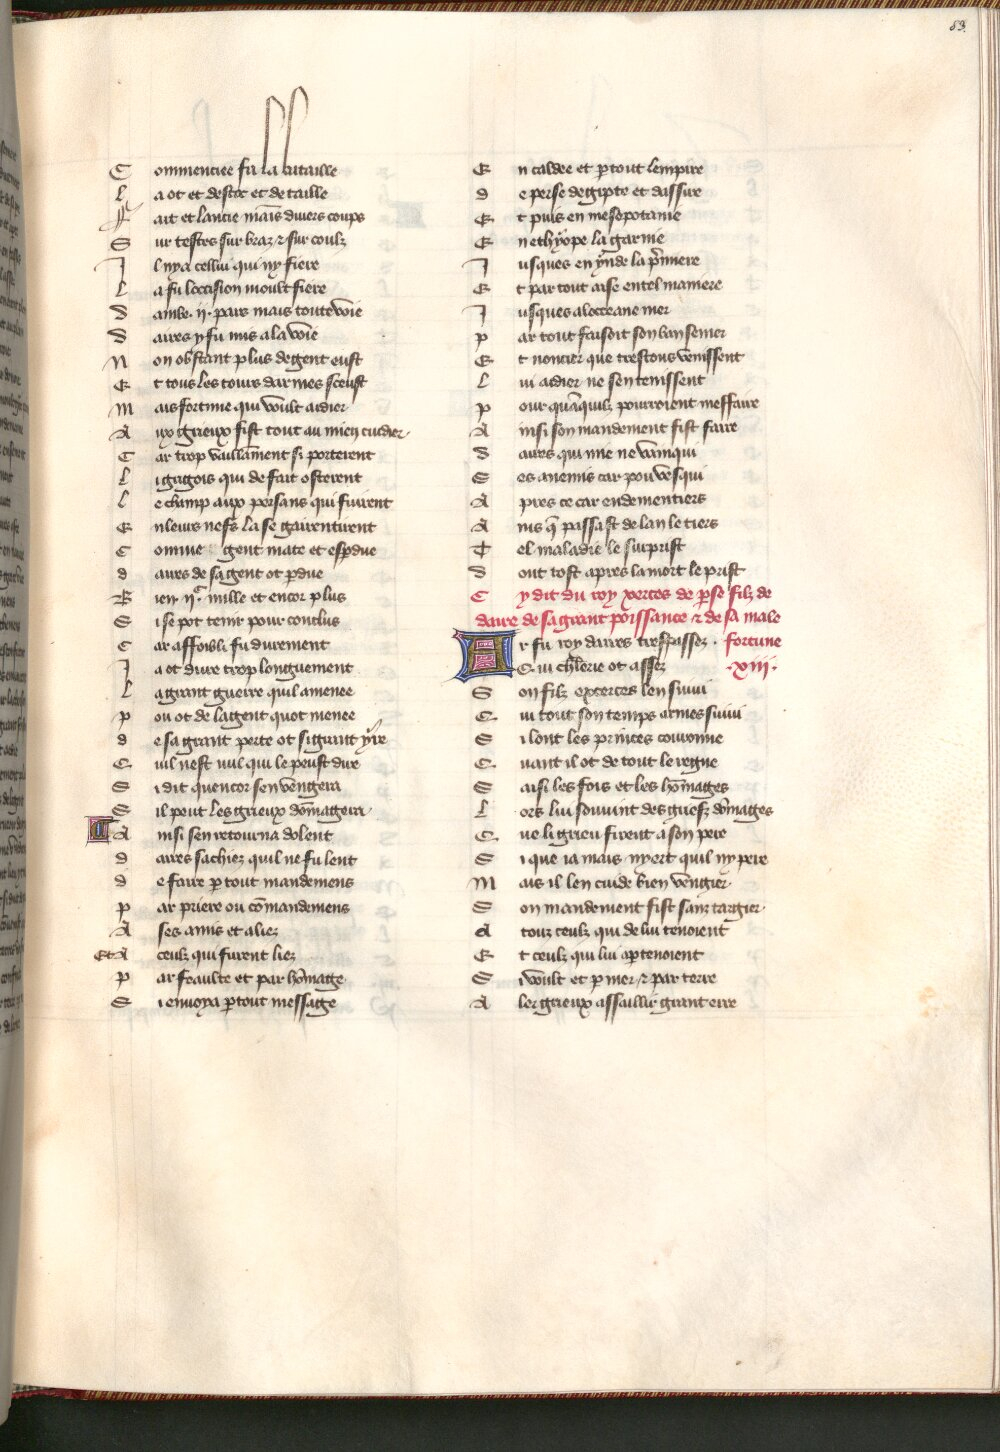 83
Commenciee fu la bataille
La ot et destoc et de taille
Fait et lancie mains divers coups
Sur testes sur braz ⁊ sur coulz
Il nya cellui qui ny fiere
La fu loccision moult fiere
Dambe .ii. pars mais toutevoie
Daires y fu mis a la voie
Non obstant plus de gent eust
Et tous les tours darmes sceust
Mais fortune qui voult aidier
Aux grieux fist tout au mieu cuidier
Car trop vaillāment si porterent
Li gregois qui de fait osterent
Le champ aux persans qui fuirent
En leurs nefs la se garentirent
Comme gent mate et esꝑdue
Daires de sa gent ot ꝑdue
Bien .ii.c mille et encor plus
Si se pot tenir pour conclus
Car affoibli fu durement
La ot dure trop longuement
La grant guerre quil amenee
Pou ot de la gent quot menee
De sa grant perte ot si grant yre
Quil nest nul qui le peust dire
Si dit quencor sen vengera
Sil peut les grieux dōmagera
Ainsi sen retourna dolent
Daires sachiez quil ne fu lent
De faire ꝑ tout mandemens
Par priere ou cōmandemens
A ses amis et aliez
Et a ceulz qui furent liez
Par feaulte et par hōmage
Si envoya ꝑtout message
En caldee et ꝑtout lempire
De perse degipte et dassire
Et puis en mesopotamie
En ethyope la garnie
Jusques en ynde la p̄miere
Et par tout aise en tel maniere
Jusques a locceane mer
Par tout faisoit son ban semer
Et noncier que trestous venissent
Lui aidier ne sen tenissent
Pour quāquilz pourroient meffaire
Ainsi son mandement fist faire
Daires qui mie ne vainqui
Ses anemis car pou vesqui
Apres ce car endementiers
Ains q̄ passast de lan le tiers
Tel maladie le surprist
Dont tost apres la mort le prist
Cy dit du roy xerces de ꝑse filz de
daire de sa grant poissance ⁊ de sa male
fortune
Ar fu roy daires trespassez
.xiii.
Qui chl̄erie ot assez
Son filz excerces len suivi
Qui tout son temps armes suivi
Si lont les princes couronne
Quant il ot de tout le regne
Saisi les fois et les hōmages
Lors lui souvint des griefz dōmages
Que li grieu firent a son pere
Si que ia mais nyert quil ny pere
Mais il len cuide bien vengier
Son mandement fist sanz targier
A touz ceulz qui de lui tenoient
Et ceulz qui lui aꝑtenoient
Si voult et ꝑ mer ⁊ par terre
Aler grieux assaillir grant erre